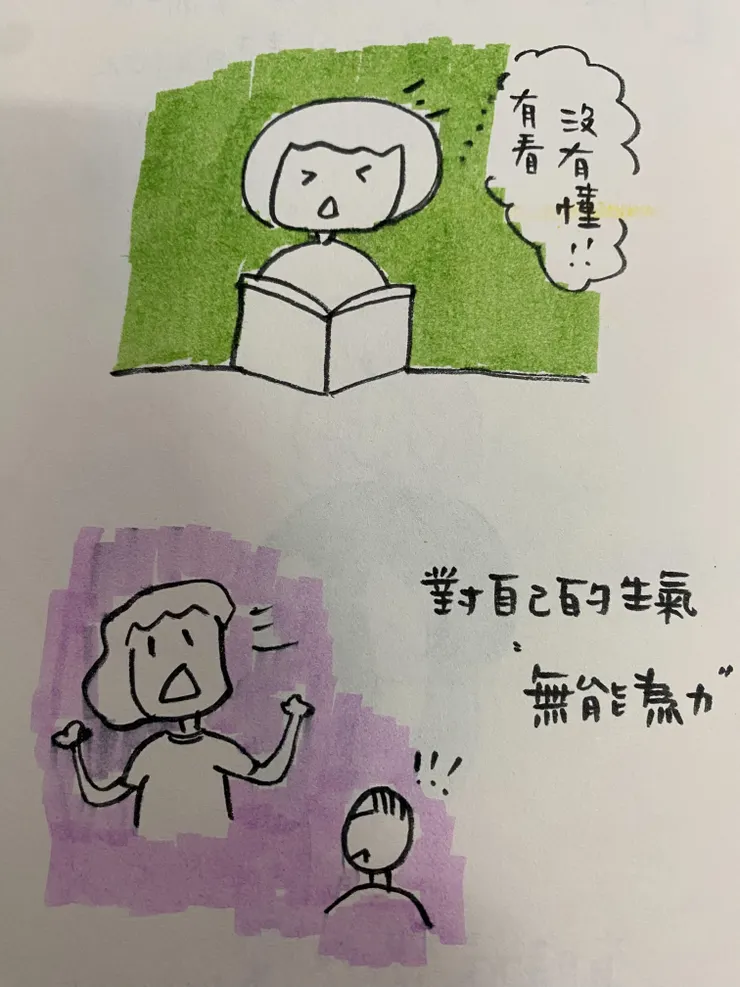 有看
沒有懂!!
對自己的生氣
〝無能為力〞
!!!